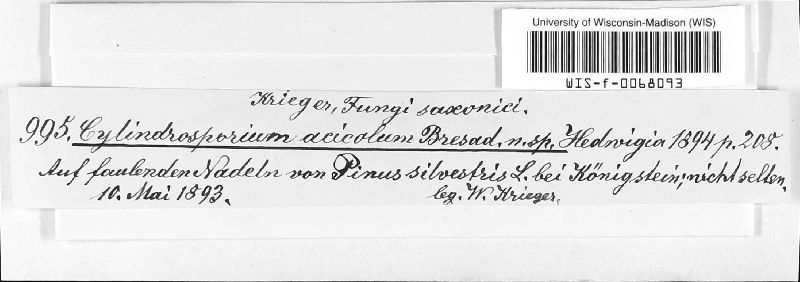 University of Wisconsin-Madison (WIS)
WIS-f-0068093
Krieger, Fungi saxonici.
995. Cylindrosporium acicolum Bresad. n. sp. Hedwigia 1894 p. 208.
Auf faulenden Nadeln von Pinus silvestris L. bei Königstein; nicht selten.
10. Mai 1893. leg. W. Krieger.